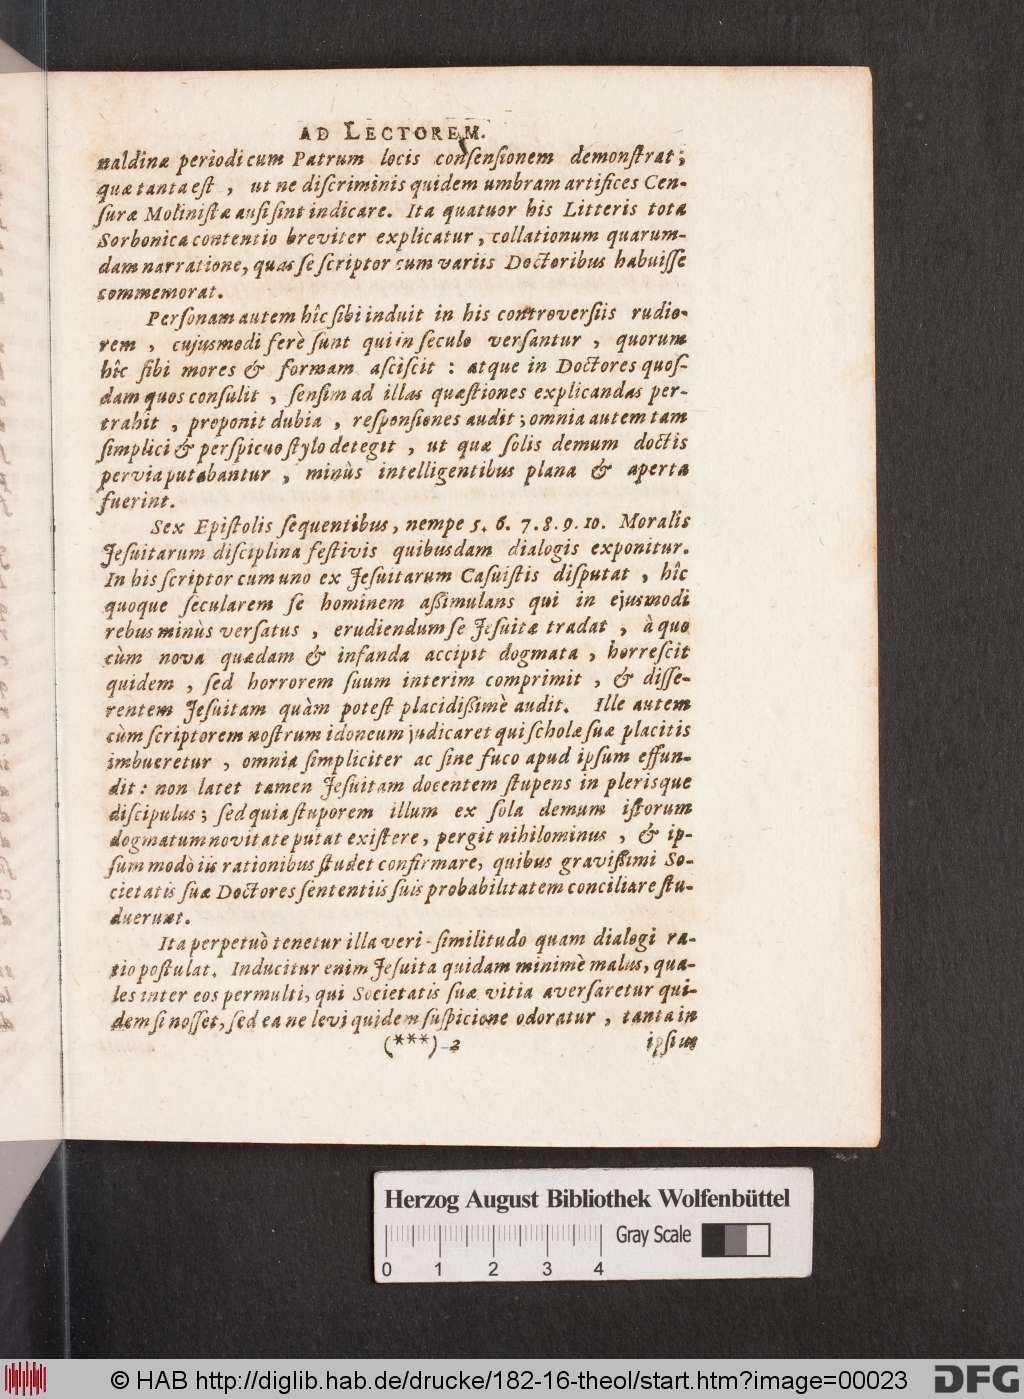 AD LECTOREM.
naldinæ periodi cum Patrum locis consensionem demonstrat;
quæ tanta est, ut ne discriminis quidem umbram artifices Cen-
suræ Molinistæ ausi sint indicare. Ita quatuor his Litteris tota
Sorbonica contentio breviter explicatur, collationum quarum-
dam narratione, quas se scriptor cum variis Doctoribus habuisse
commemorat.
Personam autem hîc sibi induit in his controversiis rudio-
rem, cujusmodi ferè sunt qui in seculo versantur, quorum
hîc sibi mores & formam asciscit: atque in Doctores quos-
dam quos consulit, sensim ad illas quæstiones explicandas per-
trahit, proponit dubia, responsiones audit; omnia autem tam
simplici & perspicuo stylo detegit, ut quæ solis demum doctis
pervia putabantur, minùs intelligentibus plana & aperta
fuerint.
Sex Epistolis sequentibus, nempe 5. 6. 7. 8. 9. 10. Moralis
Jesuitarum disciplina festivis quibusdam dialogis exponitur.
In his scriptor cum uno ex Jesuitarum Casuistis disputat, hîc
quoque secularem se hominem assimulans qui in ejusmodi
rebus minùs versatus, erudiendum se Jesuitæ tradat, à quo
cùm nova quædam & infanda accipit dogmata, horrescit
quidem, sed horrorem suum interim comprimit, & disse-
rentem Jesuitam quàm potest placidissimè audit. Ille autem
cùm scriptorem nostrum idoneum judicaret qui scholæ suæ placitis
imbueretur, omnia simpliciter ac sine fuco apud ipsum effun-
dit: non latet tamen Jesuitam docentem stupens in plerisque
discipulus; sed quia stuporem illum ex sola demum istorum
dogmatum novitate putat existere, pergit nihilominus, & ip-
sum modò iis rationibus studet confirmare, quibus gravissimi So-
cietatis suæ Doctores sententiis suis probabilitatem conciliare stu-
duerunt.
Ita perpetuò tenetur illa veri-similitudo quam dialogi ra-
tio postulat. Inducitur enim Jesuita quidam minimè malus, qua-
les inter eos permulti, qui Societatis suæ vitia aversaretur qui-
dem si nosset, sed ea ne levi quidem suspicione odoratur, tanta in
(***) 2 ipsum
Herzog August Bibliothek Wolfenbüttel
Gray Scale
0 1 2 3 4
© HAB http://diglib.hab.de/drucke/182-16-theol/start.htm?image=00023
DFG